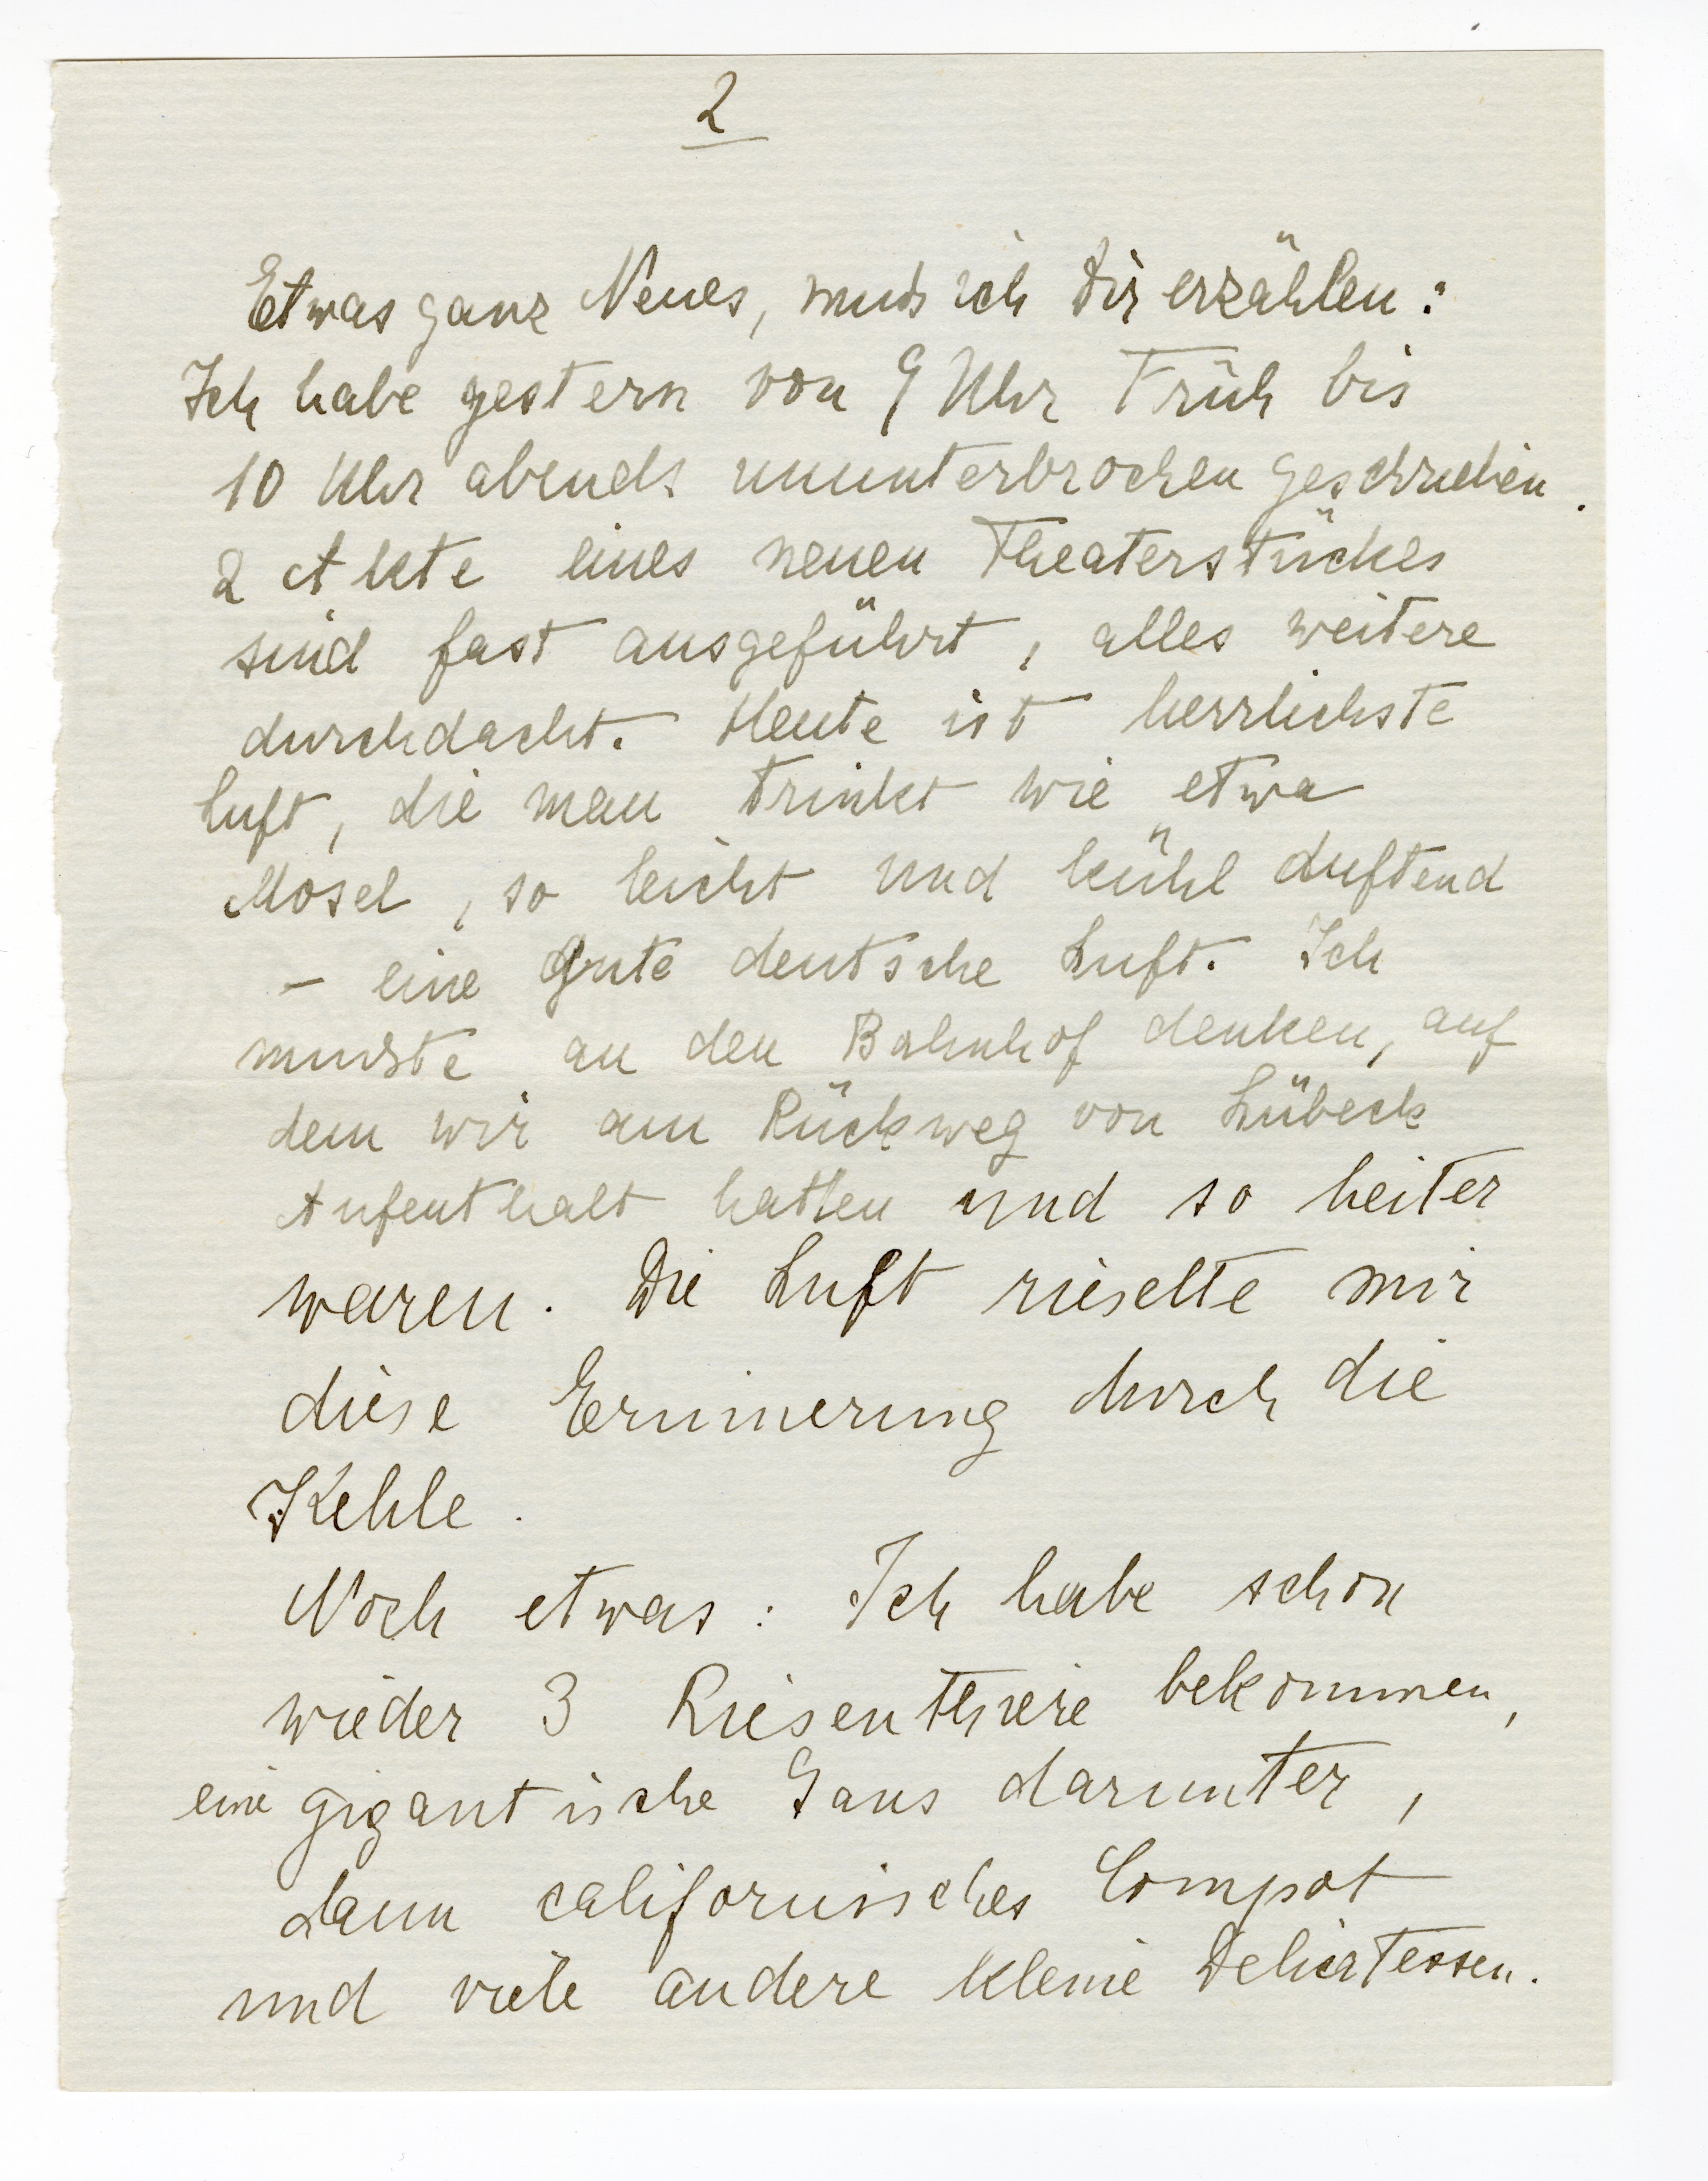 2
Etwas ganz Neues, muß ich Dir erzählen:
Ich habe gestern von 9 Uhr Früh bis
10 Uhr abends ununterbrochen geschrieben.
2 Akte eines neuen Theaterstückes
sind fast ausgeführt, alles weitere
durchdacht. Heute ist herrlichste
Luft, die man trinkt wie etwa
Mosel, so leicht und kühl duftend
– eine gute deutsche Luft. Ich
musste an den Bahnhof denken, auf
dem wir am Rückweg von Lübeck
Aufenthalt hatten und so heiter
waren. Die Luft rieselte mir
diese Erinnerung durch die
Kehle.
Noch etwas: Ich habe schon
wieder 3 Riesenthiere bekommen,
eine gigantische Gans darunter,
dann californisches Compot
und viele andere kleine Delicatessen.